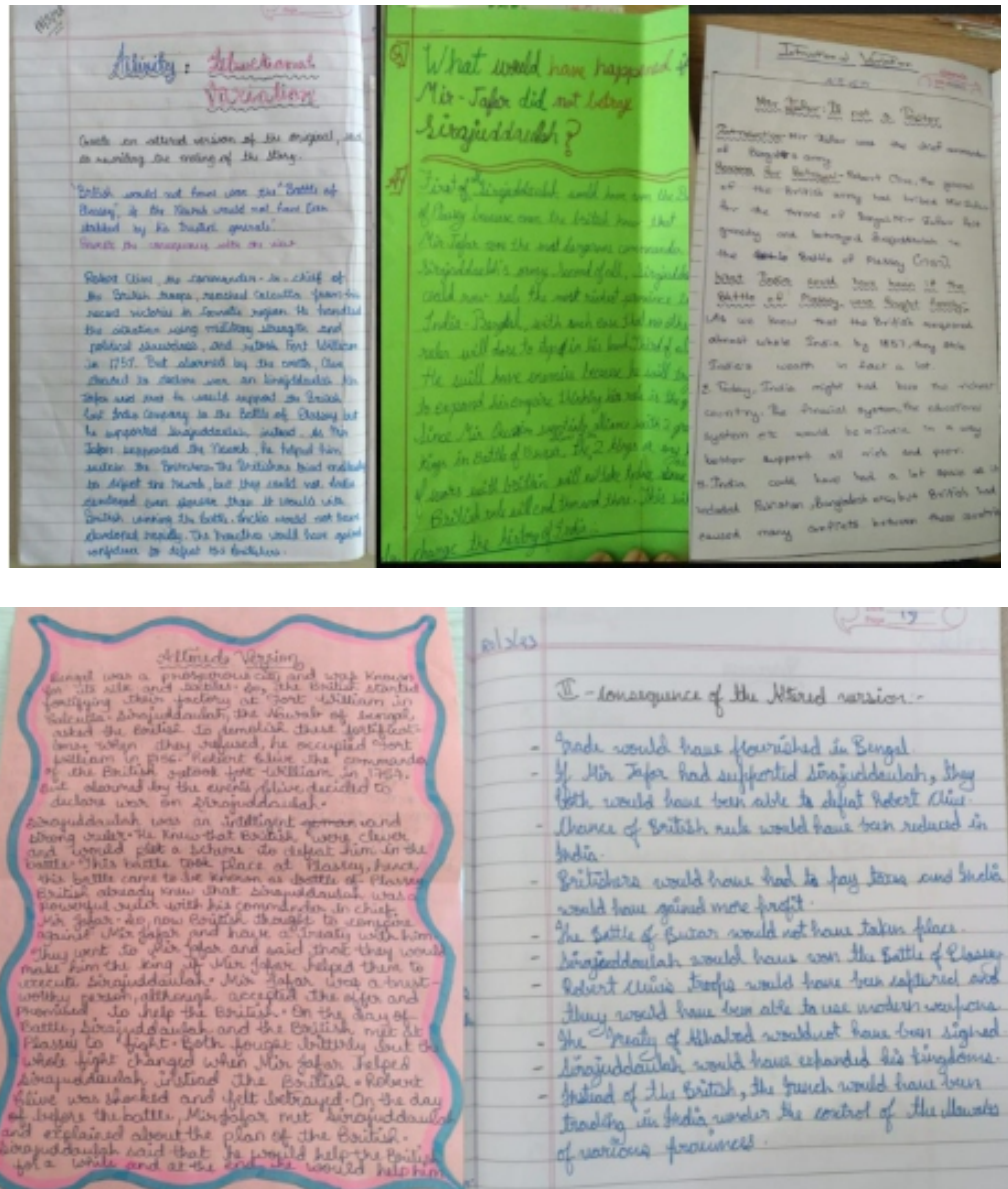 Activity: Intentional
Variation
Create an altered version of the original,
as rewriting the ending of the story.
British would not have won the "Battle of
Plassey", if the Nawab would not have been
by his trusted generals"
the consequence with the
Robert Clive, the commander-in-chief of
the British troops, reached Calcutta from his
recent victories in region. He handled
the situation using military strength and
political shrewdness, and retook Fort William
in 1757. But alarmed by the events, Clive
decided to declare war on Sirajuddaulah. Mir
Jafar said he would support the British
East India Company in the Battle of Plassey but
he supported Sirajuddaulah instead. As Mir
Jafar supported the Nawab, he helped him
the Britishers. The Britishers tried
to defeat the Nawab, but they could not. India
even than it would with
British winning the battle. India would not have
rapidly. The would have gained
confidence to defeat the Britishers.
Q)
What would have happened if
Mir-Jafar did not betray
Sirajuddaulah?
A)
First of Sirajuddaulah would have won the
of Plassey because even the british knew that
Mir Jafar was the most dangerous commander
Sirajuddaulah's army. Second of all,
could now rule the most richest province in
India - Bengal, with such ease that no other
ruler will dare to in his land. Third of all
He will have enemies because he will try
to expand his empire
Since Mir Qasim alliance with 2
kings in Battle of Buxar, the 2 kings
of wars with britain will
British rule will end then and there. This will
change the history of India.
Intentional Variation
Mir Jafar: Is not a Traitor
Introduction: Mir Jafar was the chief commander
of Bengal's army
Reason for Betrayal: Robert Clive, the general
of the British army has bribed Mir Jafar
for the throne of Bengal. Mir Jafar felt
greedy and betrayed Sirajuddaulah in
the Battle of Plassey (1757)
What India could have been if the
Battle of Plassey, was fought fairly:
1. As we know that the British acquired
almost whole India by 1857, they stole
India's wealth in fact a lot.
2. Today, India might had been the richest
country. The financial system, the educational
system etc would be in India in a way
better support all rich and poor.
3. India could have had a lot space as it
included Pakistan, Bangladesh etc, but British had
caused many conflicts between these countries
Altered Version
Bengal was a prosperous city and was known
for its silk and textiles. So, the British started
fortifying their factory at Fort William in
Calcutta. Sirajuddaulah, the Nawab of bengal,
asked the British to demolish these fortificat-
ions. When they refused, he occupied Fort
William in 1756. Robert Clive the commander
of the British retook fort William in 1757.
But alarmed by the events Clive decided to
declare war on Sirajuddaulah.
Sirajuddaulah was an intelligent and
strong ruler. He knew that British were clever
and would plot a scheme to defeat him in the
battle. This battle took place at Plassey, hence,
this battle came to be known as battle of Plassey.
British already knew that Sirajuddaulah was a
powerful ruler with his commander in chief
Mir Jafar. So, now British thought to conspire
against Mir Jafar and have a Treaty with him.
They went to Mir Jafar and said that they would
make him the king if Mir Jafar helped them to
execute Sirajuddaulah. Mir Jafar was a trust-
worthy person, although accepted the offer and
promised to help the British. On the day of
Battle, Sirajuddaulah and the British met at
Plassey to fight. Both fought bitterly but the
whole fight changed when Mir Jafar helped
Sirajuddaulah instead the British. Robert
Clive was shocked and felt betrayed. On the day
of before the battle, Mir Jafar met Sirajuddaulah
and explained about the plan of the British.
Sirajuddaulah said that he would help the British
for a while and at the end, he would help him
19
20/3/23
II - Consequence of the Altered version:-
- Trade would have flourished in Bengal.
- If Mir Jafar had supported Sirajuddaulah, they
both would have been able to defeat Robert Clive.
- Chance of British rule would have been reduced in
India.
- Britishers would have had to pay taxes and India
would have gained more profit.
- The Battle of Buxar would not have taken place.
- Sirajuddaulah would have won the Battle of Plassey
- Robert Clive's troops would have been captured and
they would have been able to use modern weapons.
- The Treaty of Allahabad would not have been signed
- Sirajuddaulah would have expanded his kingdoms.
- Instead of the British, the French would have been
trading in India under the control of the Nawabs
of various provinces.